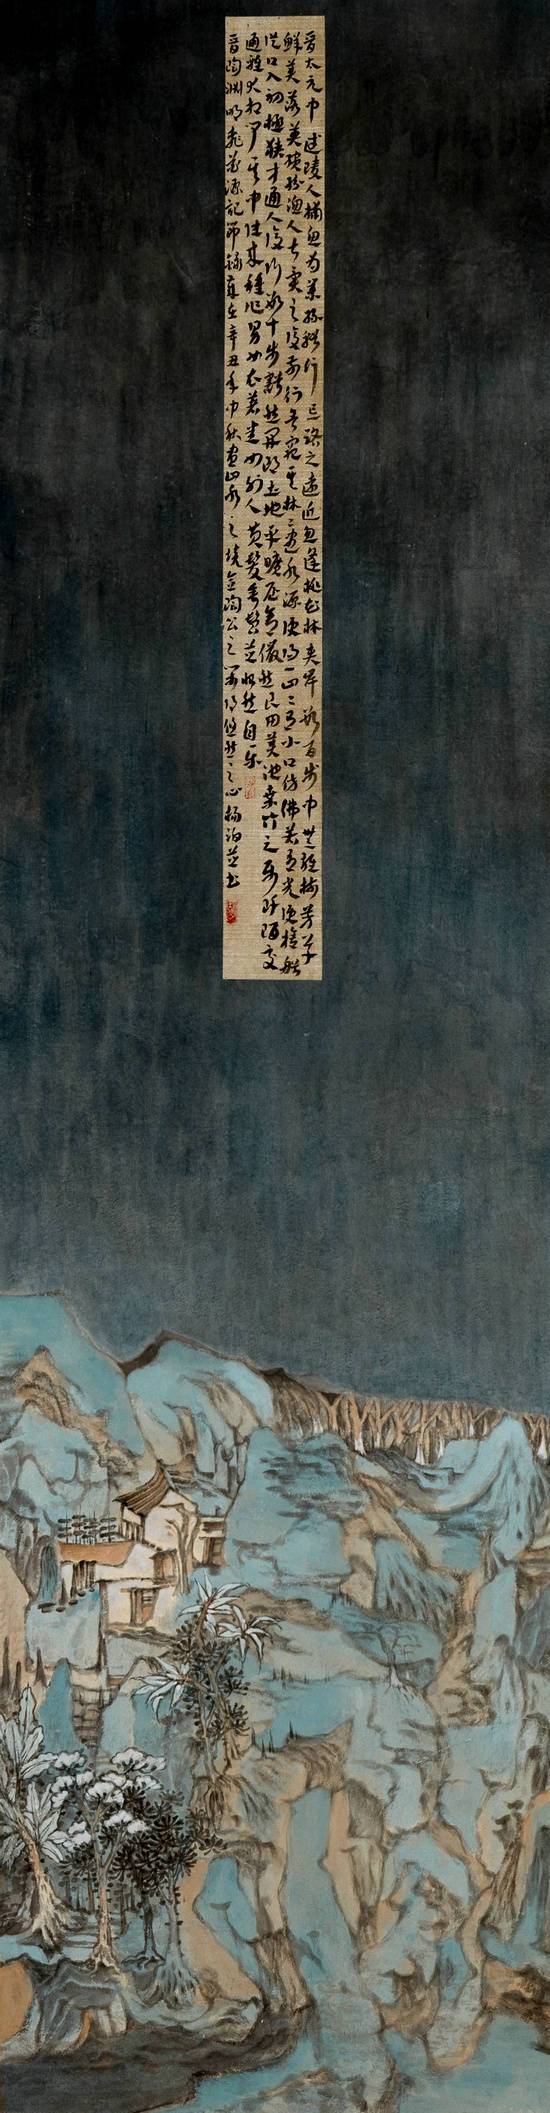 晋太元中武陵人捕鱼为業缘溪行忘路之遠近忽逢桃花林夹岸數百步中無雜樹芳草
鲜美落英缤纷漁人甚异之復前行欲窮其林林盡水源便得一山山有小口仿佛若有光便捨船
從口入初極狹才通人復行數十步豁然开朗土地平曠屋舍儼然有良田美池桑竹之属阡陌交
通雞犬相聞其中往来種作男女衣著悉如外人黄髮垂髫並怡然自乐
晋陶渊明桃花源記节録 辛丑年中秋画山水之境 陶公之 悠然之心 杨 並书